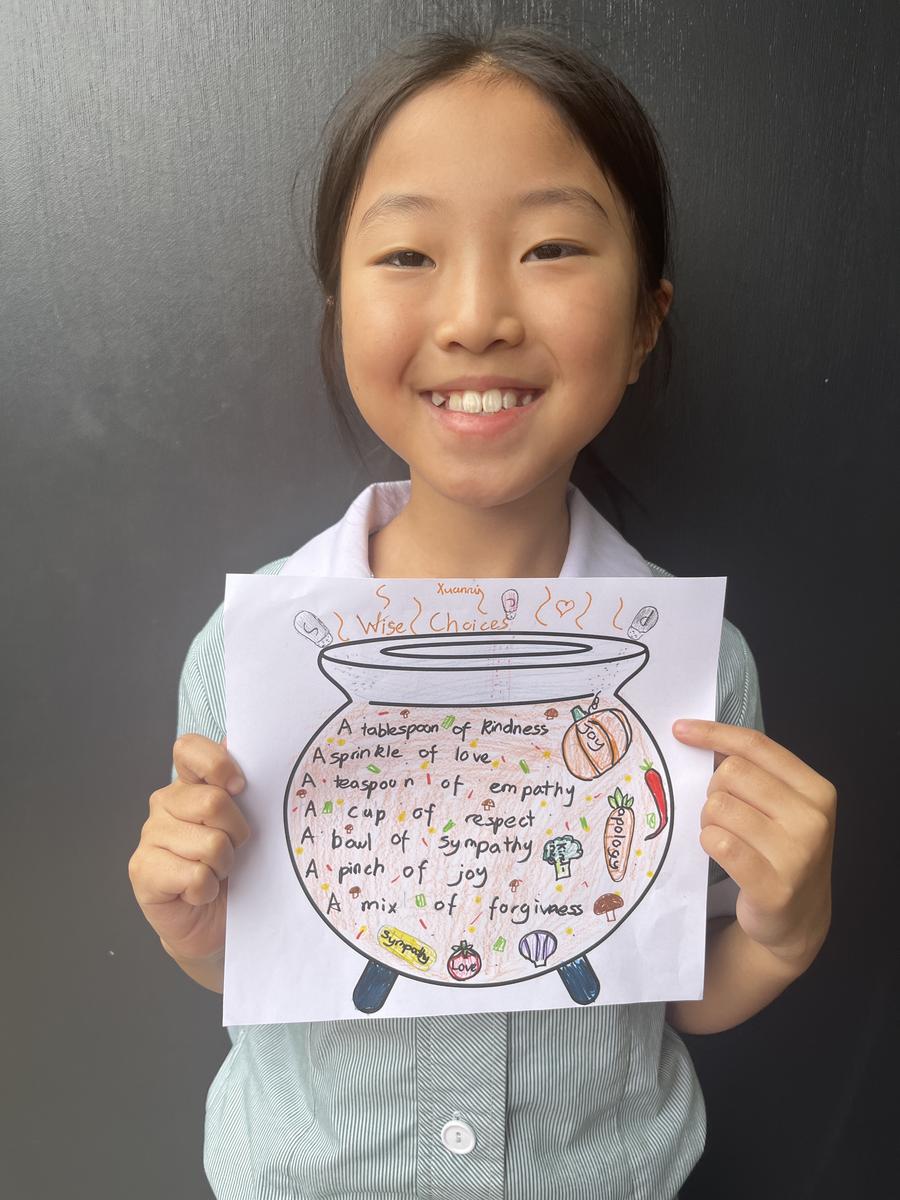 Wise Choices
A tablespoon of kindness
A sprinkle of love
A teaspoon of empathy
A cup of respect
A bowl of sympathy
A pinch of joy
A mix of forgivness
Joy
apology
Sympathy
Love